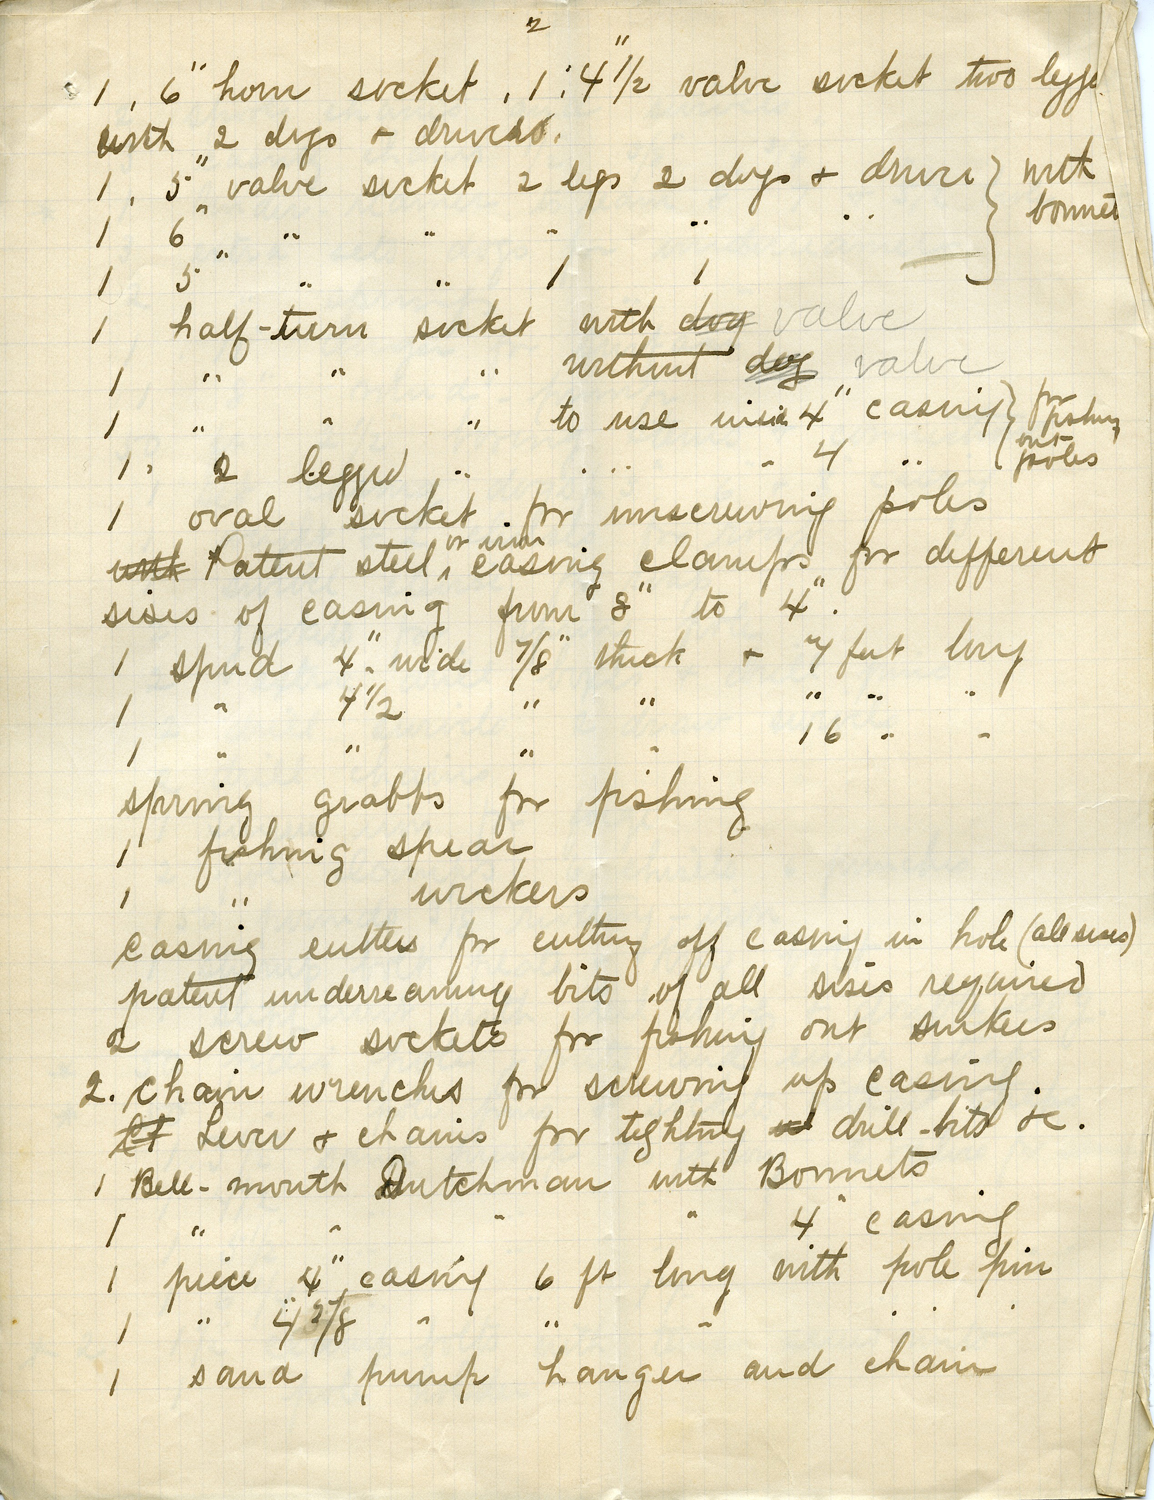 2
1, 6" horn socket, 1, 4"1/2 valve socket two legge
with 2 dogs & drivers.
1, 5" valve socket 2 legs 2 dogs & driver } with bonnet
1 6" " " " " "
1 5" " " 1 1
1 half-turn socket with dog valve
1 " " " without dog valve
1 " " " to use inside 4" casing } for fishing out poles
1. 2 legged " " " " 4 "
1 oval socket for unscrewing poles
with Patent steel, or iron casing clamps for different
sises of casing from 8" to 4".
1 spud 4" wide 7/8" thick & 7 feet long
1 " 4 1/2 " " " " "
1 " " " " 16 " "
spring grabbs for fishing
1 fishing spear
1 " wickers
casing cutters for cutting off casing in hole (all sises)
patent underreaming bits of all sises required
2 screw sockets for fishing out sinkers
2. chain wrenches for screwing up casing.
Lever & chains for tighting drill-bits &c.
1 Bell-mouth Dutchman with Bonnets
1 " " " " 4" casing
1 piece 4" casing 6 ft long with pole pin
1 " " " " " " "
1 sand pump hanger and chain